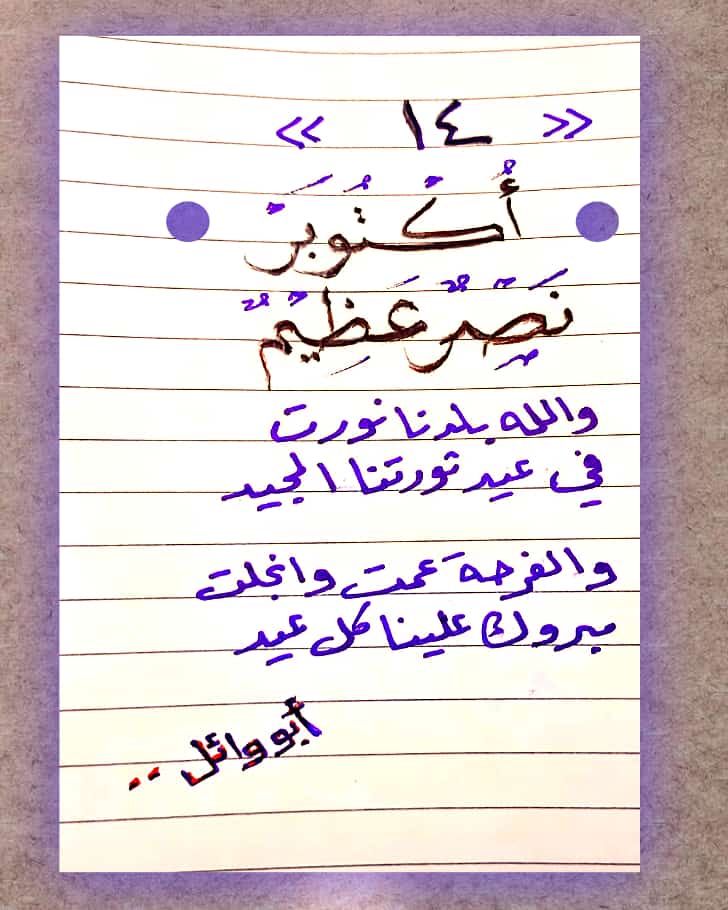 « ١٤ »
أُكْتُوبَرْ
نَصْرٌ عَظِيْمٌ
والله بلدنا نورت
في عيد ثورتنا المجيد
والفرحة عمت وانجلت
مبروك علينا كل عيد
أبو وائل ..